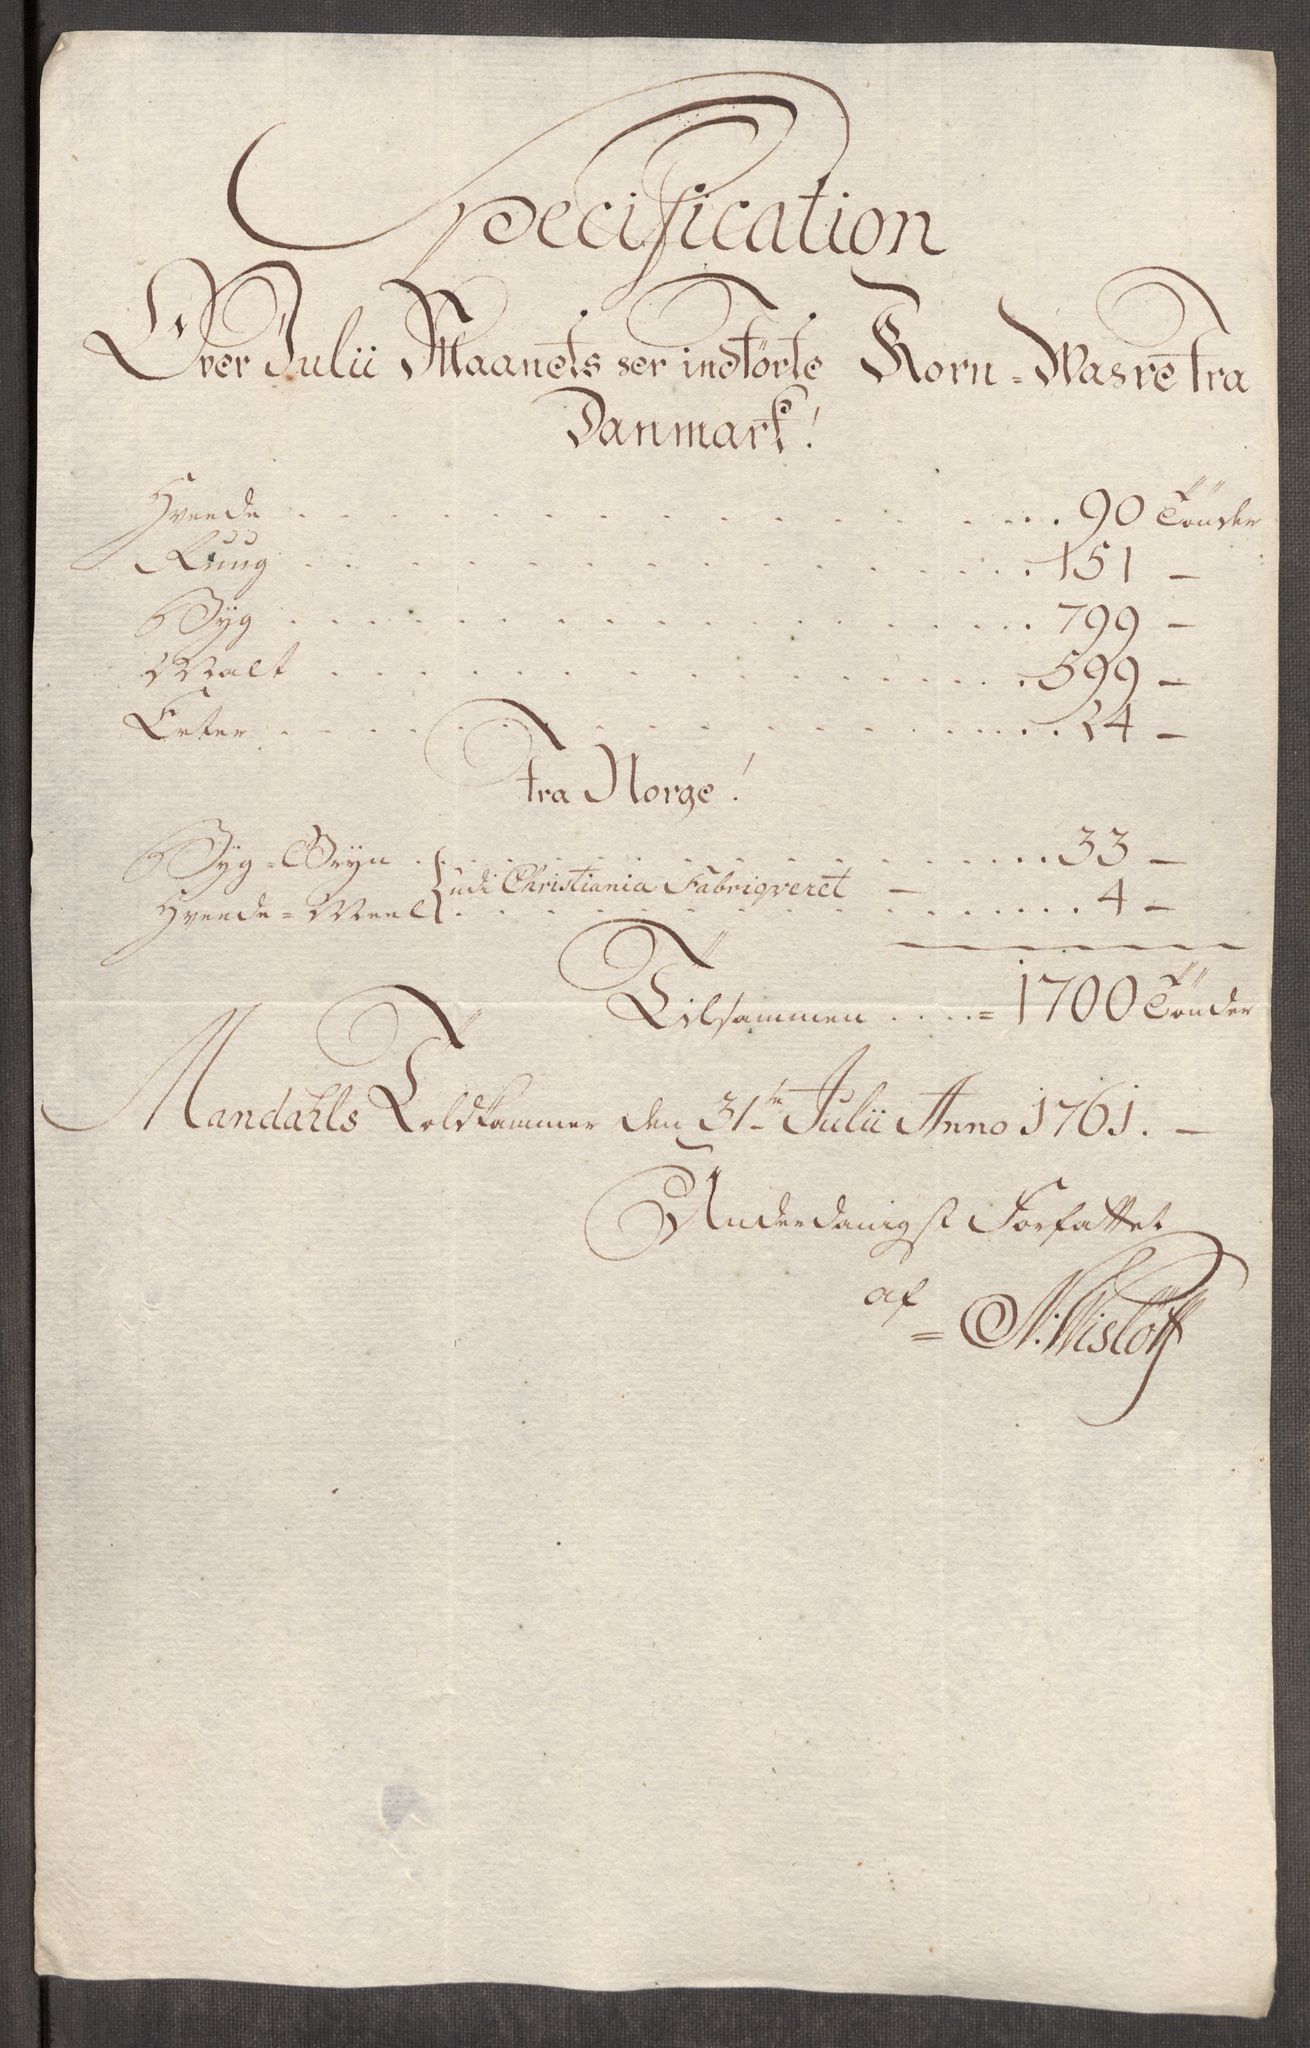 Specification
Over Julii Maanets her indförte Korn-Wahre fra
Danmark!
Hveede . . . . 90 Tönder
Ruug . . . . 151 —
Byg . . . . 799 —
Malt . . . . 599 —
Erter . . . . 24 —
fra Norge!
Byg-Gryn . . . . 33 —
{ udi Christiania Fabriqveret —
Hveede-Meel . . . . 4 —
Tilsammen . . . . = 1700 Tönder
Mandahls Toldkammer den 31te Julii Anno 1761. —
Underdanigst Forfattet
af
= N: Wislöff